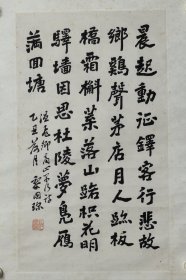 晨起動征鐸客行悲故
鄉鷄聲茅店月人跡板
橋霜槲葉落山路枳花明
驛墻因思杜陵夢鳧雁
滿回塘
溫庭筠商山早行詩
乙丑 月